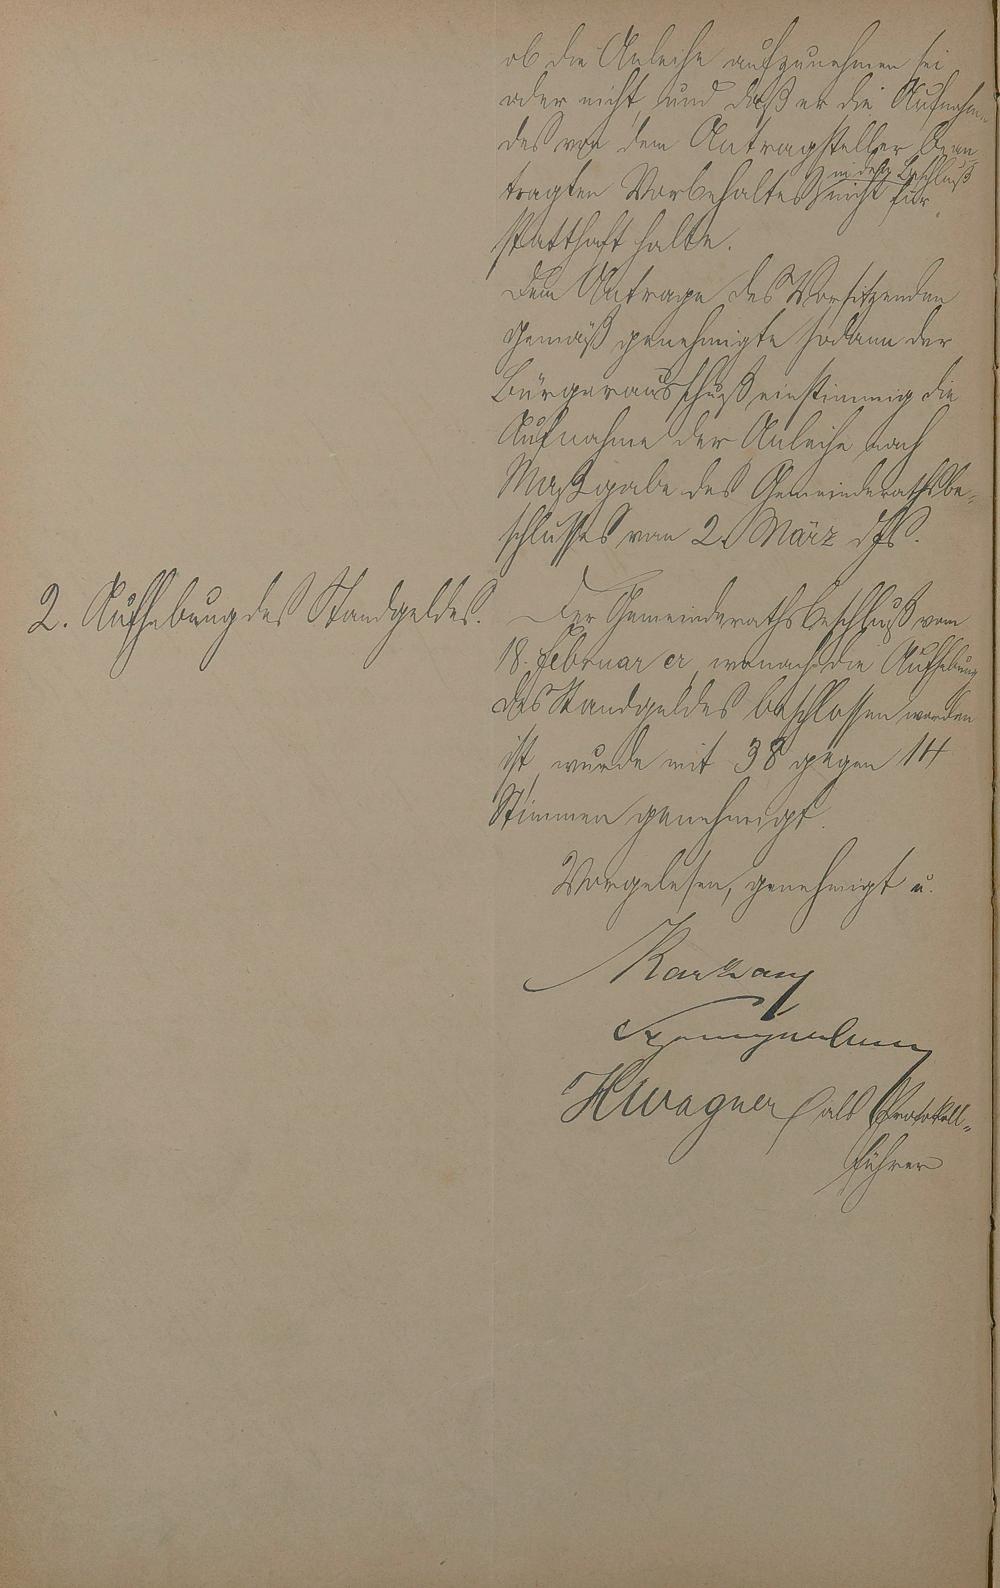 ob die Anleihe aufzunehmen sei
oder nicht, und daß er die Aufnahme
des von dem Antragsteller bean-
tragten Vorbehaltes nicht für
in den Beschluß
statthaft halte.
Dem Antrage des Vorsitzenden
gemäß genehmigte sodann der
Bürgerausschuß einstimmig die
Aufnahme der Anleihe nach
Maßgabe des Gemeinderathsbe-
schlusses vom 2. März djs.
2. Aufhebung des Standgeldes.
Der Gemeinderathsbeschluß vom
18. Februar cr, wonach die Aufhebung
des Standgeldes beschlossen worden
ist, wurde mit 38 gegen 14
Stimmen genehmigt.
Vorgelesen, genehmigt u.
HWagner als Protokoll-
führer